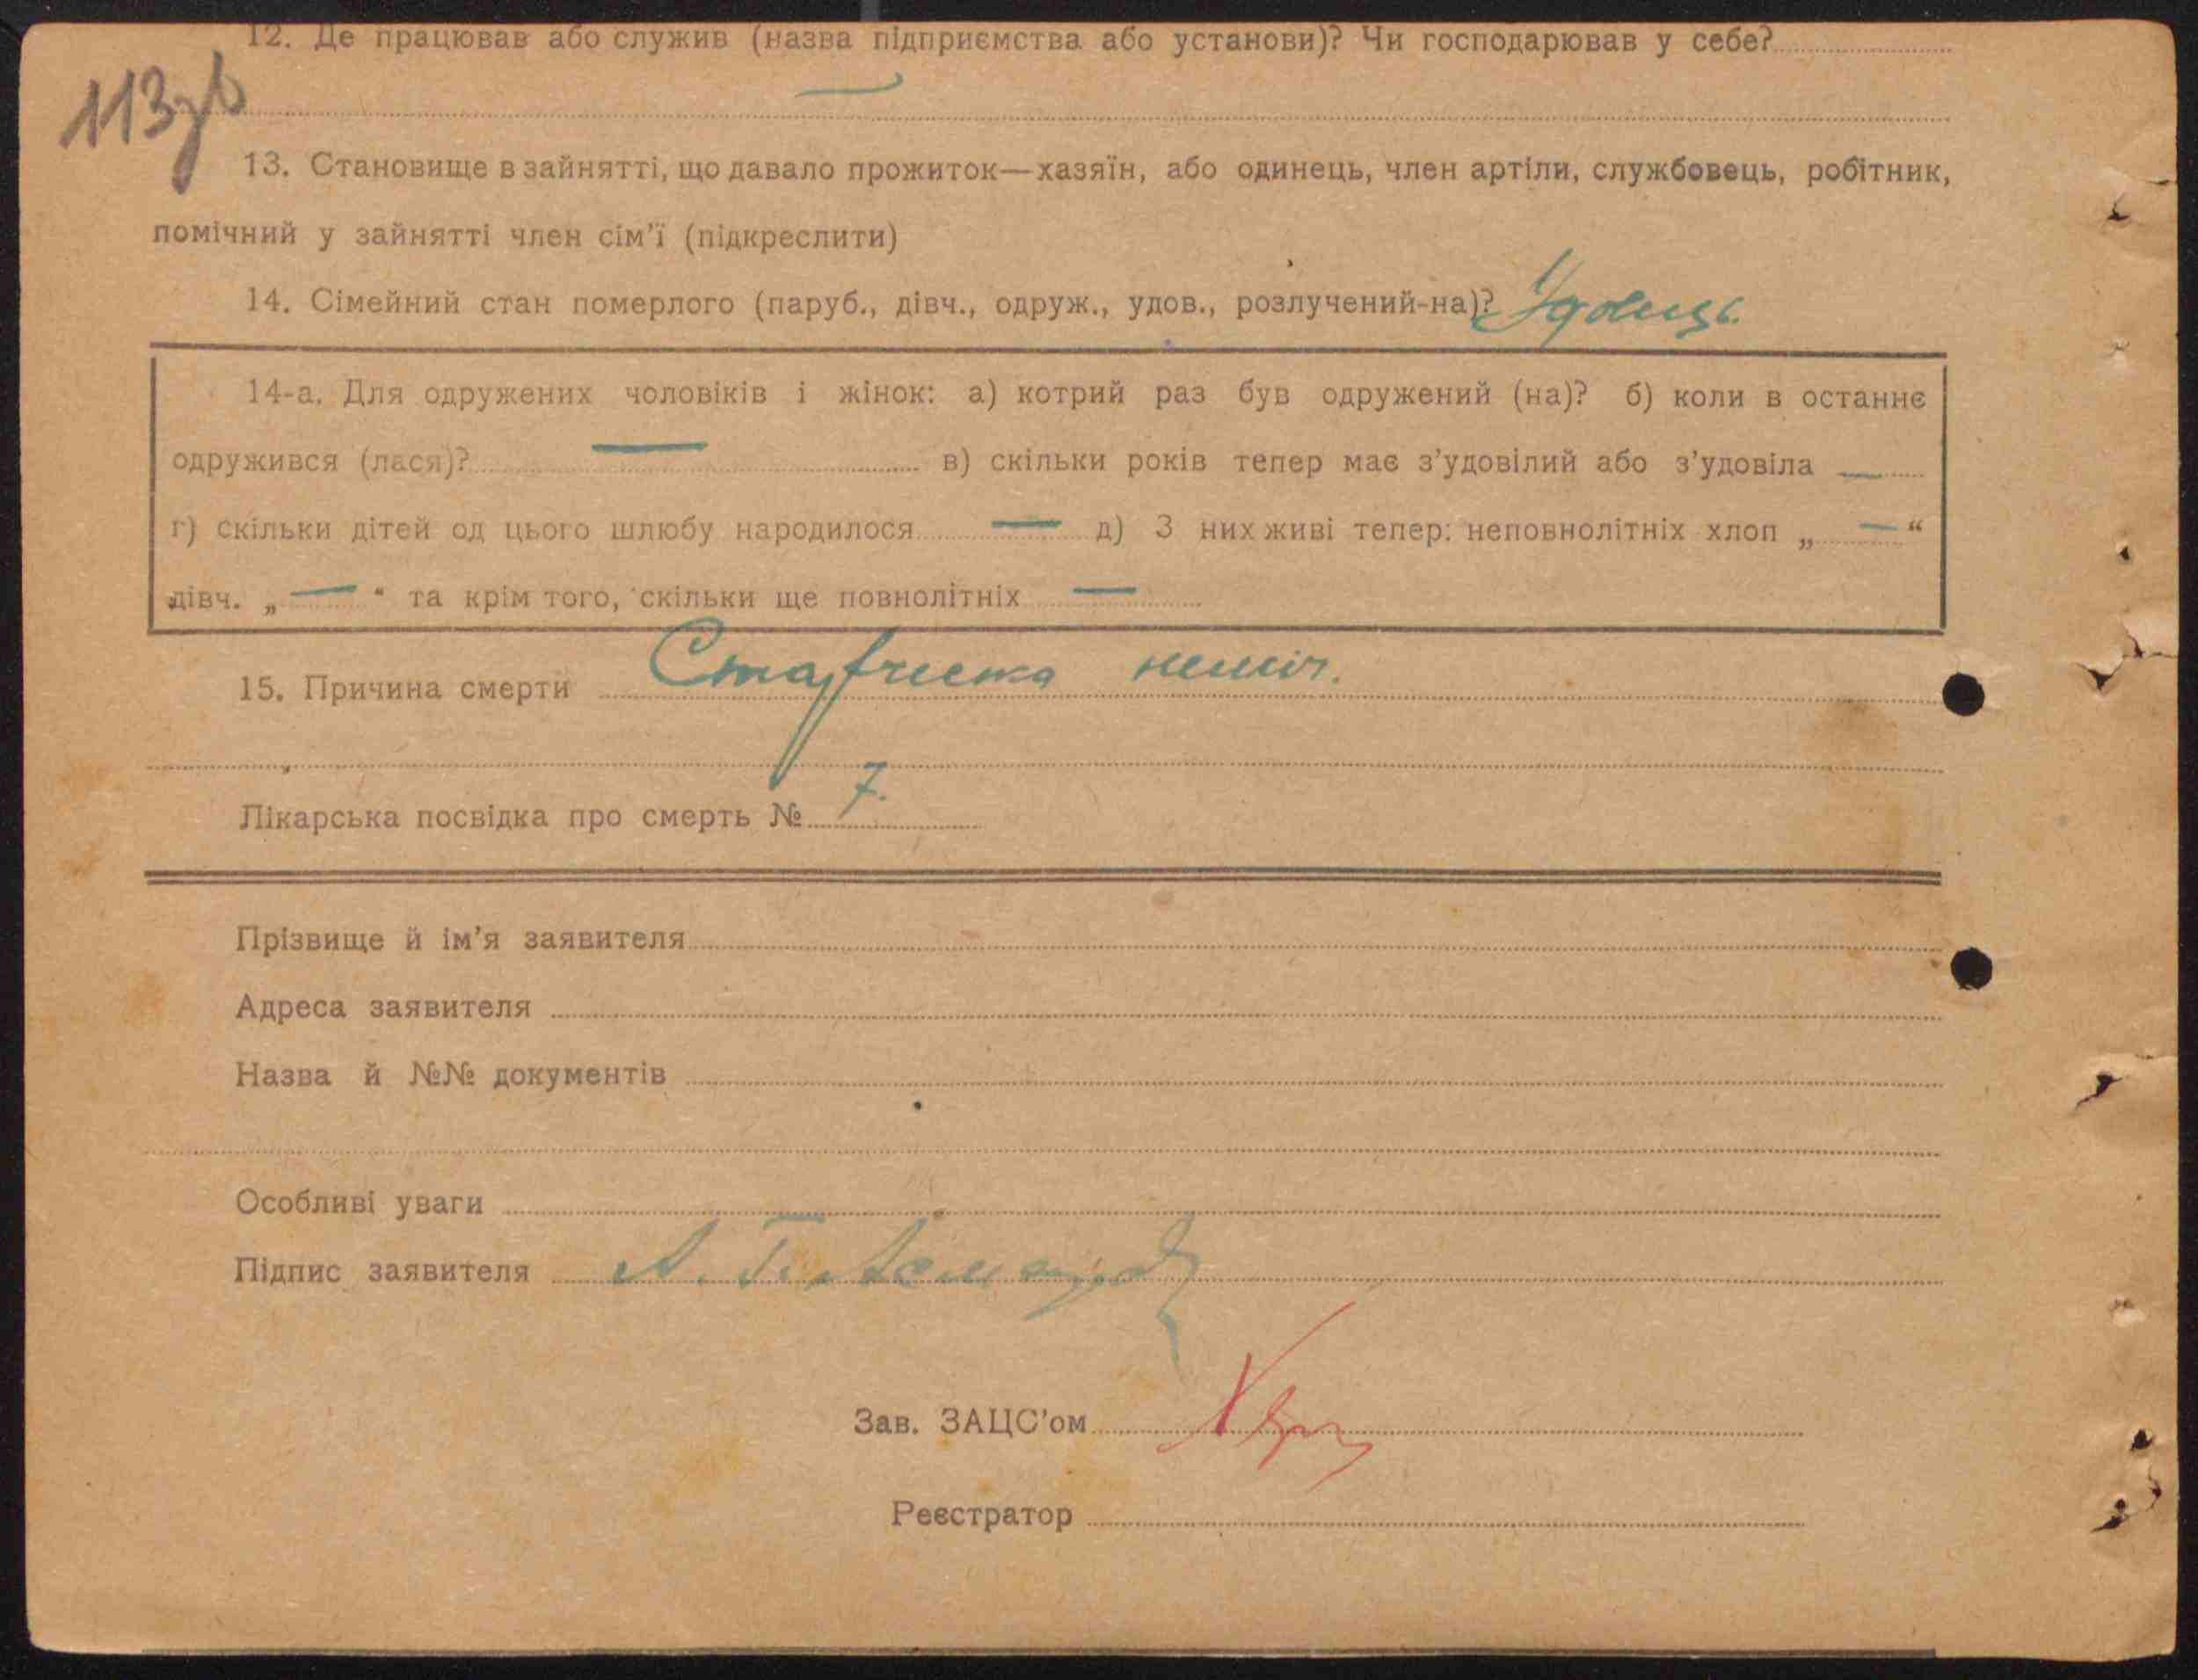 12. Де працював або служив (назва підприємства або установи)? Чи господарював у себе?
113зв
—
13. Становище в зайнятті, що давало прожиток—хазяїн, або одинець, член артіли, службовець, робітник,
помічний у зайнятті член сім'ї (підкреслити)
14. Сімейний стан померлого (паруб., дівч., одруж., удов., розлучений-на)? Удовець.
14-а. Для одружених чоловіків і жінок: а) котрий раз був одружений (на)? б) коли в останнє
одружився (лася)? — в) скільки років тепер має з'удовілий або з'удовіла —
г) скільки дітей од цього шлюбу народилося — д) З них живі тепер: неповнолітніх хлоп „ — “
дівч. „ — “ та крім того, скільки ще повнолітніх —
15. Причина смерти Старческа неміч.
Лікарська посвідка про смерть № 7.
Прізвище й ім'я заявителя
Адреса заявителя
Назва й №№ документів
Особливі уваги
Підпис заявителя
Зав. ЗАЦС'ом
Реєстратор